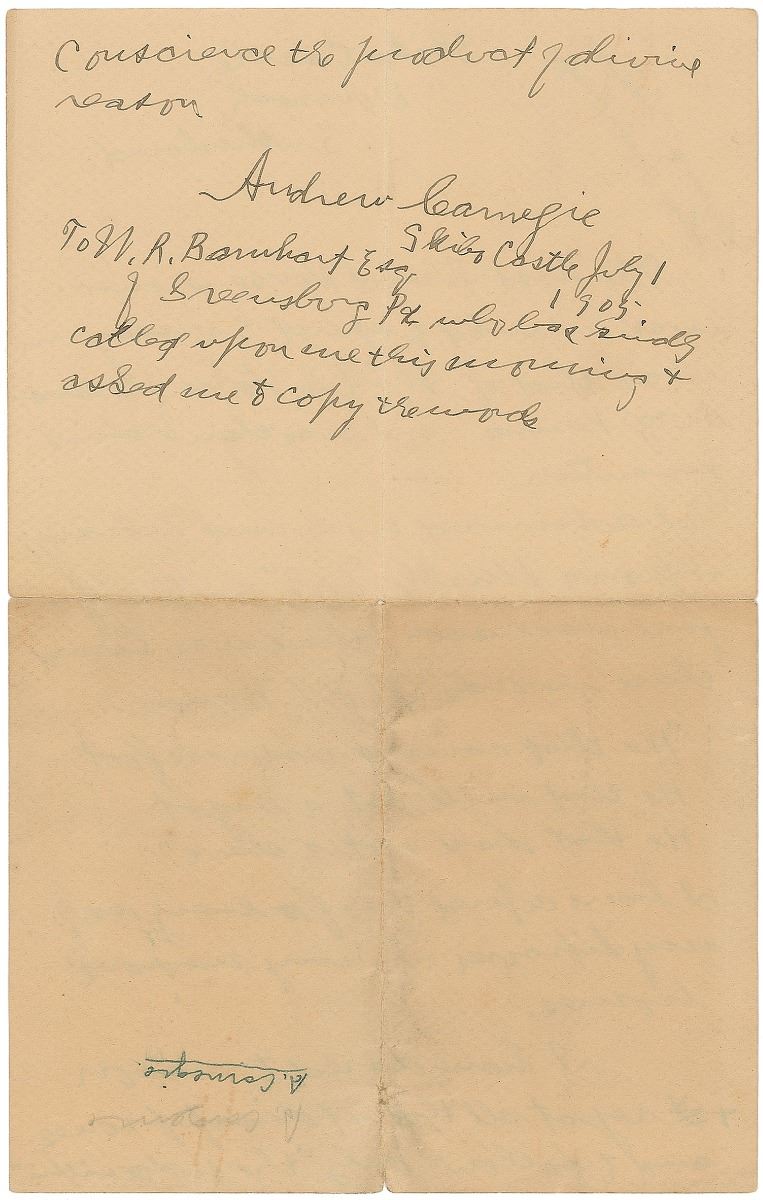 Conscience the product of divine
reason
Andrew Carnegie
Skibo Castle July 1
1905
To W. R. Barnhart Esq
of Greensburg Pa who has kindly
called upon me this morning +
asked me to copy the words
A. Carnegie.